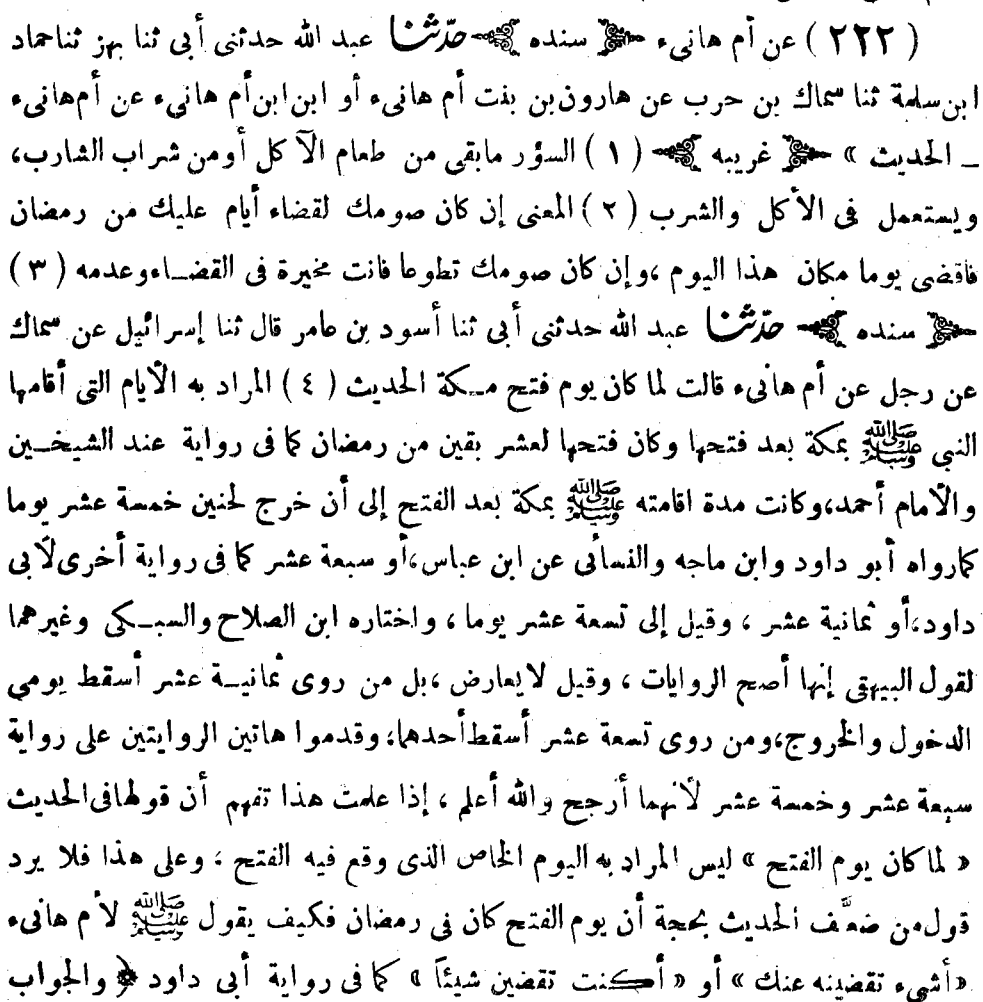 ( ٢٢٢ ) عن أم هانىء ﴿ سنده ﴾ حدّثنا عبد الله حدثنى أبى ثنا بهز ثنا حماد
ابن سلمة ثنا سماك بن حرب عن هارون بن بنت أم هانىء أو ابن ابن أم هانىء عن أم هانىء
ـ الحديث » ﴿ غريبه ﴾ ( ١ ) السؤر ما بقى من طعام الآكل أو من شراب الشارب،
ويستعمل فى الأكل والشرب ( ٢ ) المعنى إن كان صومك لقضاء أيام عليك من رمضان
فاقضى يوما مكان هذا اليوم ،وإن كان صومك تطوعا فانت مخيرة فى القضاء وعدمه ( ٣ )
﴿ سنده ﴾ حدّثنا عبد الله حدثنى أبى ثنا أسود بن عامر قال ثنا إسرائيل عن سماك
عن رجل عن أم هانىء قالت لما كان يوم فتح مكة الحديث ( ٤ ) المراد به الأيام التى أقامها
النبى ﷺ بمكة بعد فتحها وكان فتحها لعشر بقين من رمضان كما فى رواية عند الشيخين
والأمام أحمد،وكانت مدة اقامته ﷺ بمكة بعد الفتح إلى أن خرج لحنين خمسة عشر يوما
كما رواه أبو داود وابن ماجه والنسائى عن ابن عباس،أو سبعة عشر كما فى رواية أخرى لأبى
داود،أو ثمانية عشر ، وقيل إلى تسعة عشر يوما ، واختاره ابن الصلاح والسبكى وغيرهما
لقول البيهقى إنها أصح الروايات ، وقيل لا يعارض ،بل من روى ثمانية عشر أسقط يومى
الدخول والخروج،ومن روى تسعة عشر أسقط أحدهما، وقدموا هاتين الروايتين على رواية
سبعة عشر وخمسة عشر لأنهما أرجح والله أعلم ، إذا علمت هذا تفهم أن قولها فى الحديث
« لما كان يوم الفتح » ليس المراد به اليوم الخاص الذى وقع فيه الفتح ، وعلى هذا فلا يرد
قول من ضعَّف الحديث بحجة أن يوم الفتح كان فى رمضان فكيف يقول ﷺ لأم هانىء
«أشىء تقضينه عنك » أو « أكنت تقضين شيئاً » كما فى رواية أبى داود ﴿ والجواب